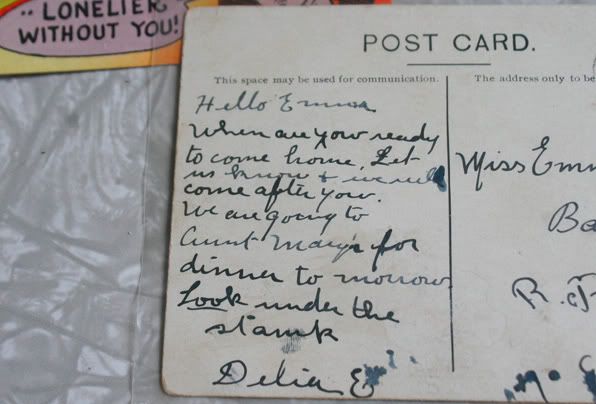 .. LONELIER
WITHOUT YOU!
POST CARD.
This space may be used for communication.
The address only to be
Hello Emma
When are you ready
to come home, Let
us know & we will
come after you.
We are going to
Aunt Mary's for
dinner to morrow
Look under the
stamk
Delia E
Miss Emm
Ba
R.F